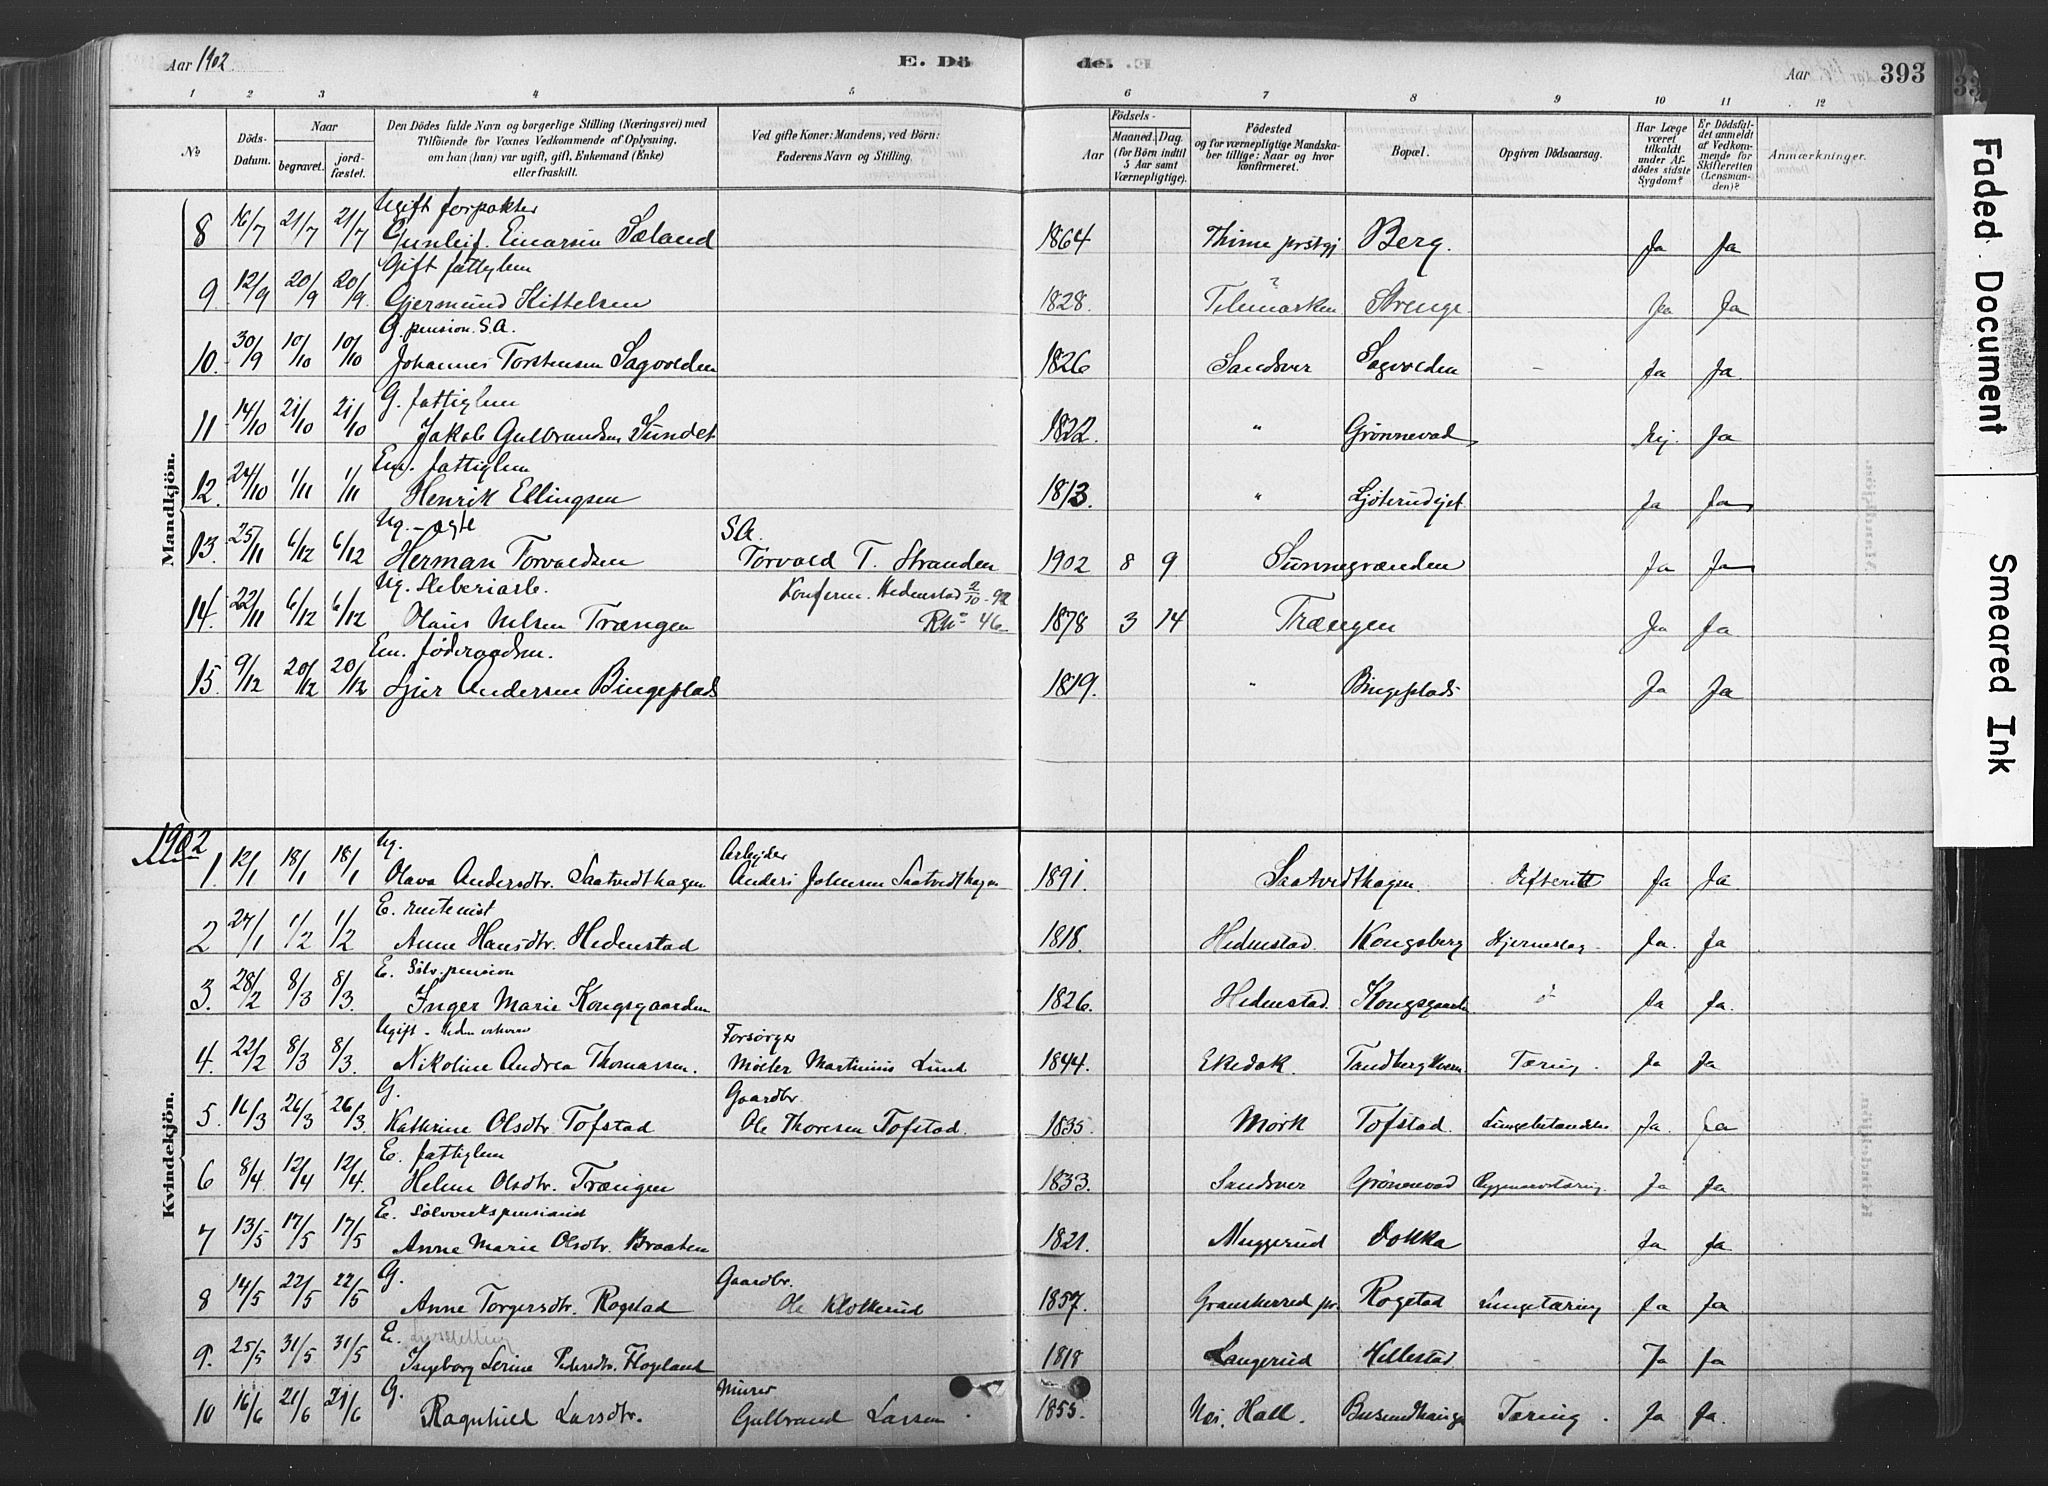 Aar 1902
E. Dö
de]. E
Aar
393
1 2 3 4 5 6 7 8 9 10 11 12
No
Döds-Datum.
Naar
begravet.
jordfæstet.
Den Dödes fulde Navn og borgerlige Stilling (Næringsvei) med
Tilföiende for Voxnes Vedkommende af Oplysning,
om han (hun) var ugift, gift, Enkemand (Enke)
eller fraskilt.
Ved gifte Koner: Mandens, ved Börn:
Faderens Navn og Stilling.
Födsels-
Aar
Maaned. Dag.
(for Börn indtil
5 Aar samt
Værnepligtige).
Födested
og for værnepligtige Mandskaber tillige: Naar og hvor
konfirmeret.
Bopæl.
Opgiven Dödsaarsag.
Har Læge
været
tilkaldt
under Afdödes sidste
Sygdom?
Er Dödsfaldet anmeldt
af Vedkommende for
Skifteretten
(Lensmanden)?
Anmærkninger.
Mandkjön.
Ugift forpakter
8 16/7 21/7 21/7 Gunleif Einarsen Sæland 1864 Thime prstgj Berg. Ja Ja
Gift fattiglem
9. 12/9 20/9 20/9. Gjermund Kittelsen 1828. Telemarken ? Strenge. Ja Ja
G. pension. S.A.
10. 30/9 10/10 10/10 Johannes Torstensen Sagvolden 1826 Sandsver Sagvolden - Ja Ja.
G. fattiglem
11 14/10 21/10 21/10 Jakob Gulbrandsen Sundet 1822. " Grønnevad Nej. Ja
Em. fattiglem
12. 24/10 1/11 1/11 Henrik Ellingsen 1813. " Ljøterudejet Ja Ja
Ug. - ægte S.A.
13. 25/11 6/12 6/12 Herman Torvaldsen Torvald T. Stranden 1902 8 9 Sunnegrænden Ja Ja
Ug. Konferm. Hedenstad 2/10-92
14. 22/11 6/12 6/12 Hans Nilsen Trængen 46 1878 3 14 Trængen Ja Ja
Em. føderaadsm.
15. 9/12 20/12 20/12 Sjur Andersen Bingeplads 1819. " Bingeplads Ja Ja
1902
Kvindekjön.
Ug. Arbejder
1. 12/1 18/1 18/1 Olava Andersdtr. Saatvedthagen Anders Johnsen Saatvedthagen 1891. Saatvedthagen. Difterit Ja Ja.
E. rentenist
2 27/1 1/2 1/2 Anne Hansdtr. Hedenstad 1818. Hedenstad. Kongsberg Hjerneslag Ja. Ja
E. Sølv. pension
3. 28/2 8/3 8/3. Inger Marie Kongsgaarden 1826. Hedenstad. Kongsgaarden Ja Ja.
Ugift - uden erhverv Forsørger
4. 22/2 8/3 8/3. Nikoline Andrea Thomassen. Møller Martinius Lund 1844. Ekedok. Tandberg Kvern Tæring. Ja Ja
G. Gaardbr.
5. 16/3 26/3 26/3. Kathrine Olsdtr. Tofstad Ole Thoresen Tofstad. 1835. Mørk Tofstad. Lungebetændelse Ja. Ja
E. fattiglem
6 8/4 12/4 12/4. Helene Olsdtr. Trængen 1833. Sandsver Grønnevad Rygmarvstæring. Ja Ja
E. Sølvverkspensionist
7 13/5 17/5 17/5 Anne Marie Olsdtr. Braaten 1821. Muggerud Dokka Ja Ja.
G. Gaardbr.
8 14/5 22/5 22/5 Anne Torgersdtr. Rogstad Ole Klokkerud 1857. Gransherred pr. Rogstad Lungetæring Ja Ja
E.
9. 25/5 31/5 31/5 Ingeborg Serine Pedersdtr. Flogeland 1818 Langerud Hellestad - Ja Ja
G. Murer
10 16/6 21/6 21/6 Ragnhild Larsdtr. Gulbrand Larsen. 1855. Nes, Hall. Busundhauge Tæring. Ja Ja.
Faded Document
Smeared Ink